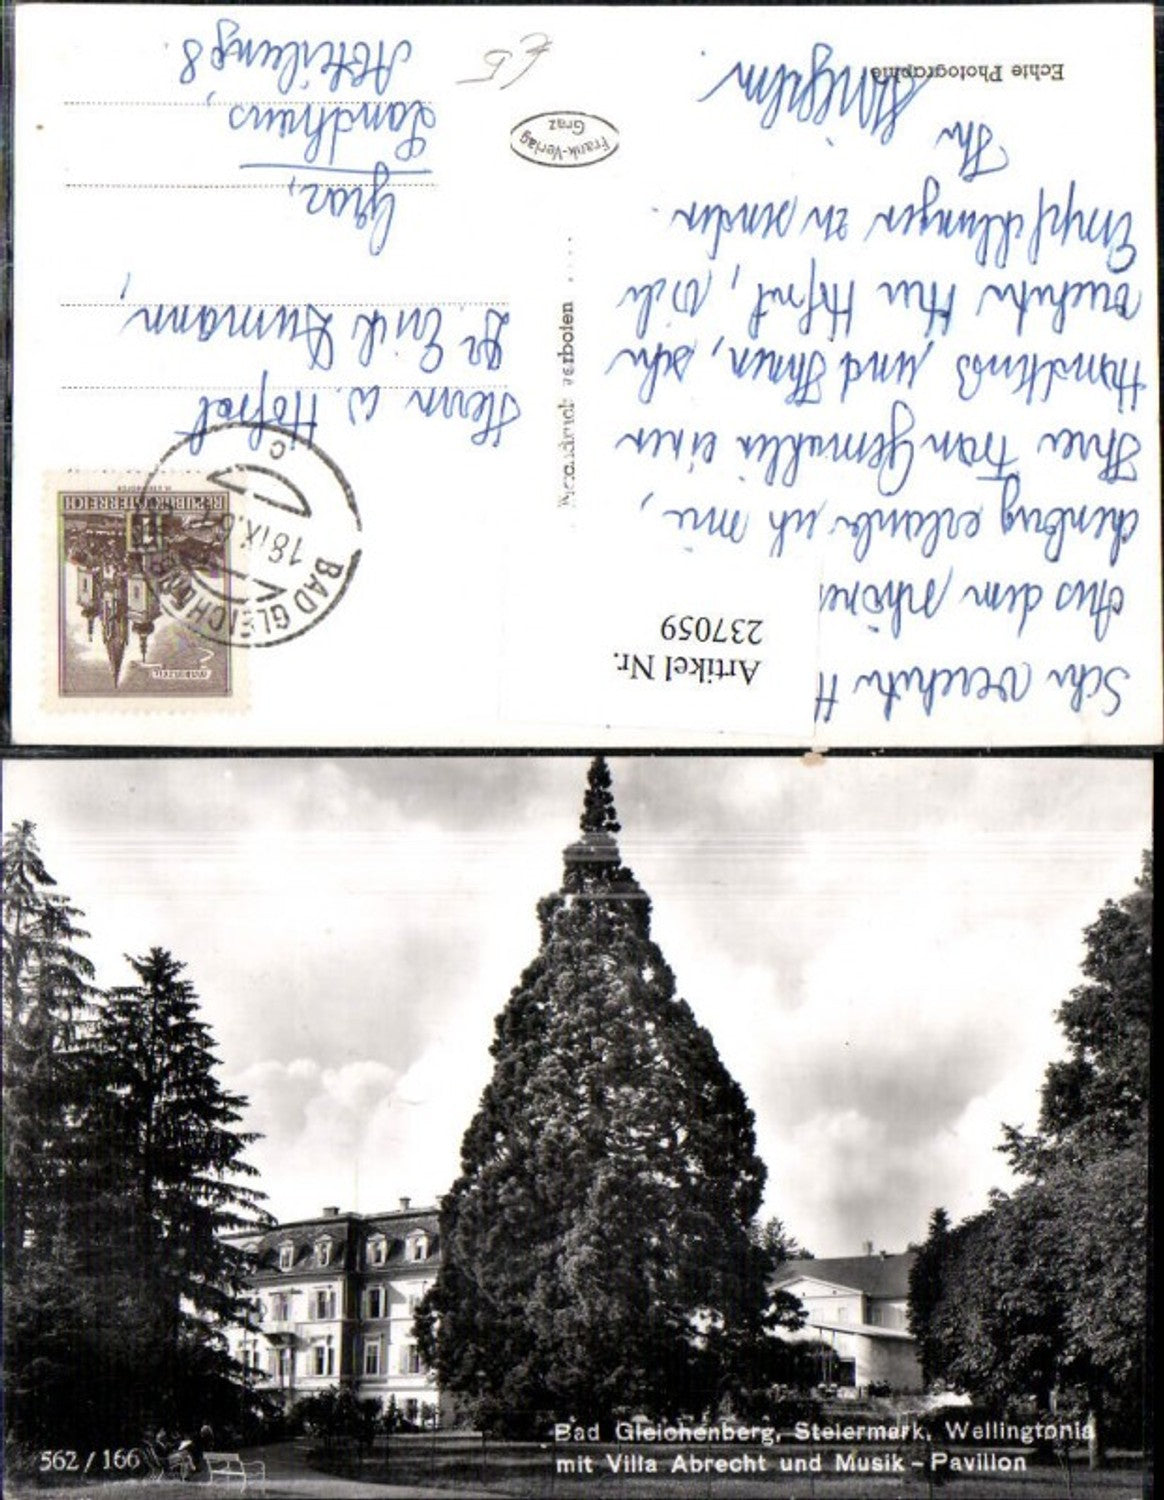 Echte Photographie
Sehr verehrter H
Aus dem schönen
chenberg erlaube ich mir,
Ihrer Frau Gemahlin einen
Handkuß und Ihnen, sehr
verehrter Herr Hofrat, viele
Empfehlungen zu senden.
Ihr
Artikel Nr.
237059
Nachdruck verboten
Frank-Verlag
Graz
€ 5
MARIAZELL
REPUBLIK ÖSTERREICH
BAD GLEICHENBERG
18.IX.6
c
Herrn w. Hofrat
Dr. Erich
Graz,
Landhaus,
Abteilung 8.
562/166
Bad Gleichenberg, Steiermark, Wellingtonia
mit Villa Abrecht und Musik-Pavillon